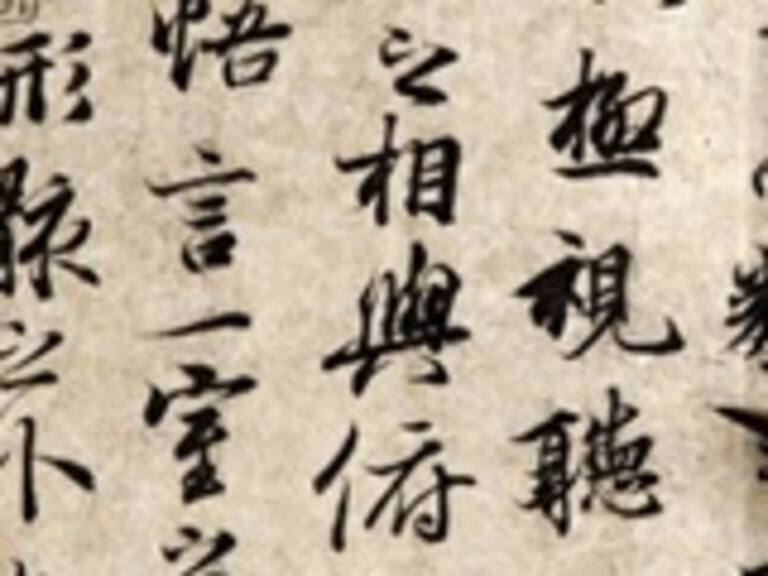 極視聽
之相與俯
悟言一室之
形骸之外